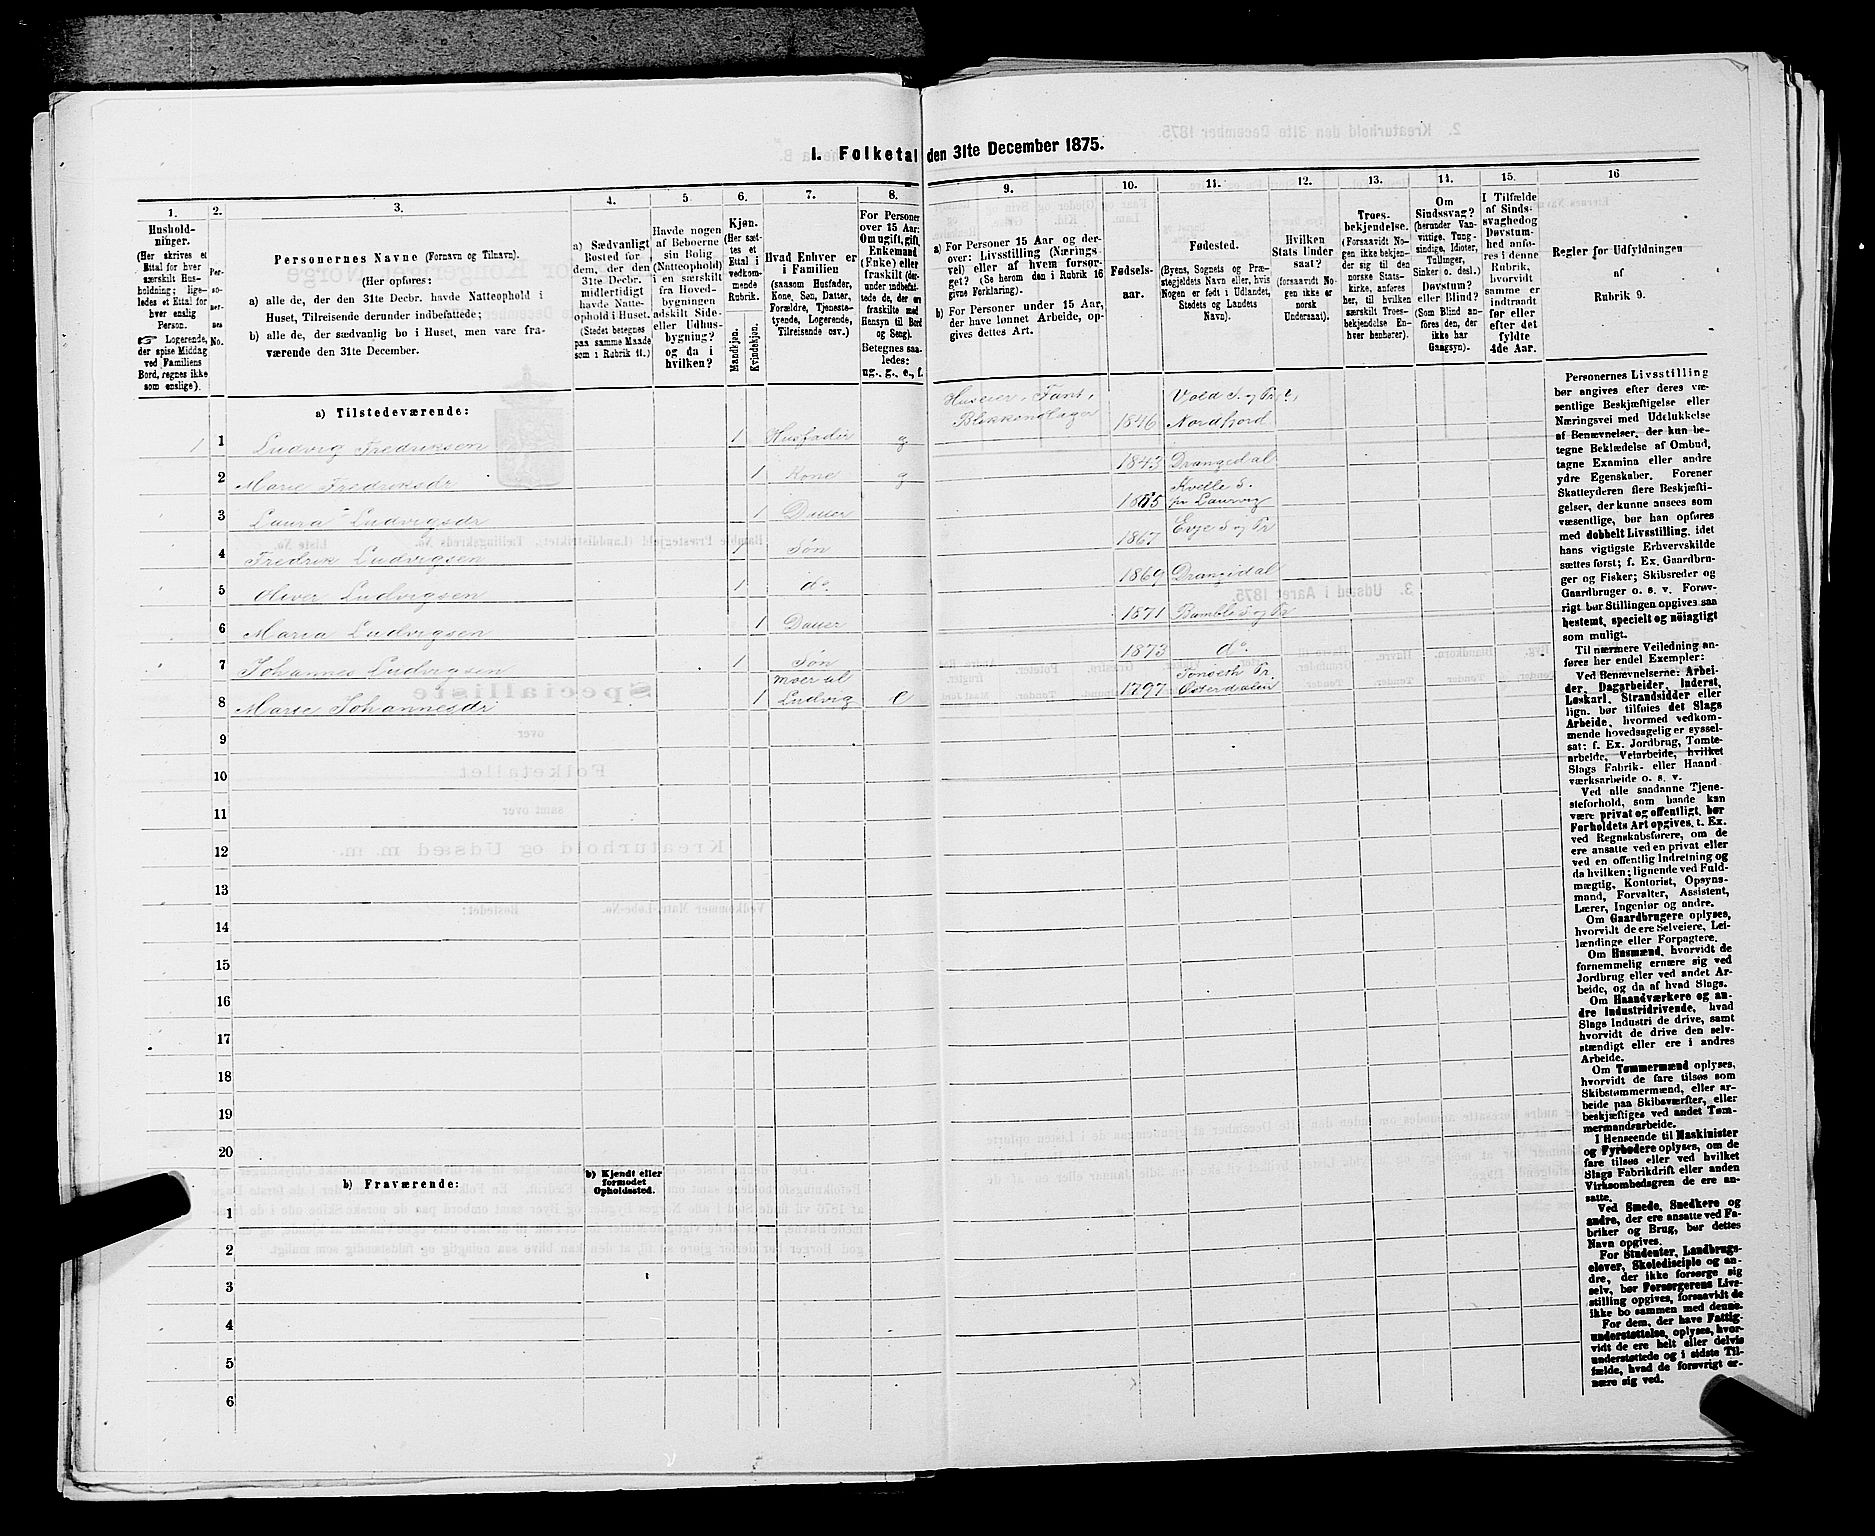 I. Folketal den 31te December 1875.
1.
Hushold-
ninger.
(Her skrives et
Ettal for hver
særskilt Hus-
holdning; lige-
ledes et Ettal for
hver enslig
Person.
☞ Logerende,
der spise Middag
ved Familiens
Bord, regnes ikke
som enslige).
2.
Per-
so-
ner-
nes
No.
3.
Personernes Navne (Fornavn og Tilnavn).
(Her opføres:
a) alle de, der den 31te Decbr. havde Natteophold i
Huset, Tilreisende derunder indbefattede;
b) alle de, der sædvanlig bo i Huset, men vare fra-
værende den 31te December.
4.
a) Sædvanligt
Bosted for
dem, der den
31te Decbr.
midlertidigt
havde Natte-
ophold i Huset.
(Stedet betegnes
paa samme Maade
som i Rubrik 11.)
5.
Havde nogen
af Beboerne
sin Bolig
(Natteophold)
i en særskilt
fra Hoved-
bygningen
adskilt Side-
eller Udhus-
bygning?
og da i
hvilken?
6.
Kjøn.
(Her sæt-
tes et
Ettal i
vedkom-
mende
Rubrik.
Mandkjøn.
Kvindekjøn.
7.
Hvad Enhver er
i Familien
(saasom Husfader,
Kone, Søn, Datter,
Forældre, Tjeneste-
tyende, Logerende,
Tilreisende osv.)
8.
For Personer
over 15 Aar:
Om ugift, gift,
Enkemand
(Enke) eller
fraskilt (der-
under indbefat-
tede de, der ere
fraskilte med
Hensyn til Bord
og Seng).
Betegnes saa-
ledes:
ug., g., e., f.
9.
a) For Personer 15 Aar og der-
over: Livsstilling (Nærings-
vei) eller af hvem forsør-
get? (Se herom den i Rubrik 16
givne Forklaring).
b) For Personer under 15 Aar,
der have lønnet Arbeide, op-
gives dettes Art.
10.
Fødsels-
aar.
11.
Fødested.
(Byens, Sognets og Præ-
stegjeldets Navn eller, hvis
Nogen er født i Udlandet,
Stedets og Landets
Navn).
12.
Hvilken
Stats Under
saat?
(forsaavidt No-
gen ikke er
norsk
Undersaat).
13.
Troes-
bekjendelse.
(Forsaavidt No-
gen ikke bekjen-
der sig til den
norske Stats-
kirke, anføres
her, til hvilken
særskilt Troes-
bekjendelse En-
hver henhører).
14.
Om
Sindssvag?
(herunder Van-
vittige, Tung-
sindige, Idioter,
Tullinger,
Sinker o. desl.)
Døvstum?
eller Blind?
(Som Blind an-
føres den, der
ikke har
Gangsyn).
15.
I Tilfælde
af Sinds-
svaghed og
Døvstum-
hed anfø-
res i denne
Rubrik,
hvorvidt
samme er
indtraadt
før eller
efter det
fyldte
4de Aar.
16
Regler for Udfyldningen
af
Rubrik 9.
a) Tilstedeværende:
1 1 Ludvig Fredriksen 1 Husfader g Huseier, Fant, Blikkenslager 1846 Vold S. og Pr. Nordfjord
2 Marie Fredriksdr 1 Kone g 1843 Drangedal
3 Laura Ludvigsdr 1 Datter 1865 Kvelle S. pr Laurvig
4 Fredrik Ludvigsen 1 Søn 1867 Evje S og Pr
5 Oliver Ludvigsen 1 do. 1869 Drangedal
6 Maria Ludvigsen 1 Datter 1871 Bamble S og Pr
7 Johannes Ludvigsen 1 Søn 1873 do.
8 Marie Johannesdr 1 Moer til Ludvig e 1797 Pr. Østerdalen
9
10
11
12
13
14
15
16
17
18
19
20
b) Fraværende:
b) Kjendt eller
formodet
Opholdssted.
1
2
3
4
5
6
Personernes Livsstilling
bør angives efter deres væ-
sentlige Beskjæftigelse eller
Næringsvei med Udelukkelse
af Benævnelser, der kun be-
tegne Beklædelse af Ombud,
tagne Examina eller andre
ydre Egenskaber. Forener
Skatteyderen flere Beskjæfti-
gelser, der kunne ansees som
væsentlige, bør han opføres
med dobbelt Livsstilling, idet
hans vigtigste Erhvervskilde
sættes først; f. Ex. Gaardbru-
ger og Fisker; Skibsreder og
Gaardbruger o. s. v. Forøv-
rigt bør Stillingen opgives saa
bestemt, specielt og nøiagtigt
som muligt.
Til nærmere Veiledning an-
føres her endel Exempler:
Ved Benævnelserne: Arbei-
der, Dagarbeider, Inderst,
Løskarl, Strandsidder eller
lign. bør tilføies det Slags
Arbeide, hvormed vedkom-
mende hovedsagelig er syssel-
sat: f. Ex. Jordbrug, Tomte-
arbeide, Veiarbeide, hvilket
Slags Fabrik- eller Haand
værksarbeide o. s. v.
Ved alle saadanne Tjene-
steforhold, som baade kan
være privat og offentligt, bør
Forholdets Art opgives, t. Ex.
ved Regnskabsførere, om de
ere ansatte ved en privat eller
ved en offentlig Indretning og
da hvilken; lignende ved Fuld-
mægtig, Kontorist, Opsyns-
mand, Forvalter, Assistent,
Lærer, Ingeniør og andre.
Om Gaardbrugere oplyses,
hvorvidt de ere Selveiere, Lei-
lændinge eller Forpagtere.
Om Husmænd, hvorvidt de
fornemmelig ernære sig ved
Jordbrug eller ved andet Ar-
beide, og da af hvad Slags.
Om Haandværkere og an-
dre Industridrivende, hvad
Slags Industri de drive, samt
hvorvidt de drive den selv-
stændigt eller ere i andres
Arbeide.
Om Tømmermænd oplyses,
hvorvidt de fare tilsøs som
Skibstømmermænd, eller ar-
beide paa Skibsværfter, eller
beskjæftiges ved andet Tøm-
mermandsarbeide.
I Henseende til Maskinister
og Fyrbødere oplyses, om de
fare tilsøs eller ved hvilket
Slags Fabrikdrift eller anden
Virksombedsgren de ere an-
satte.
Ved Smede, Snedkere og
andre, der ere ansatte ved Fa-
briker og Brug, bør dettes
Navn opgives.
For Studenter, Landbrugs-
elever, Skoledisciple og an-
dre, der ikke forsørge sig
selv, bør Forsørgerens Livs-
stilling opgives, forsaavidt de
ikke bo sammen med denne.
For dem, der have Fattig-
understøttelse, oplyses, hvor-
vidt de ere helt eller delvis
understøttede og i sidste Til-
fælde, hvad de forøvrigt er-
nære sig ved.